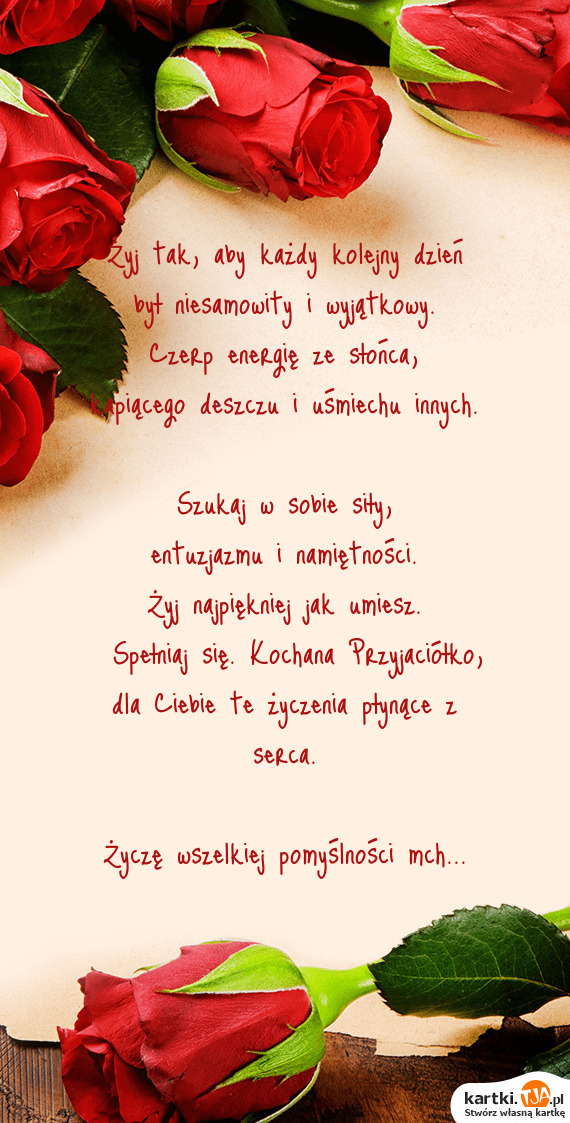 Żyj tak, aby każdy kolejny dzień
był niesamowity i wyjątkowy.
Czerp energię ze słońca,
kapiącego deszczu i uśmiechu innych.
Szukaj w sobie siły,
entuzjazmu i namiętności.
Żyj najpiękniej jak umiesz.
Spełniaj się. Kochana Przyjaciółko,
dla Ciebie te życzenia płynące z
serca.
Życzę wszelkiej pomyślności mch...
kartki.TJA.pl
Stwórz własną kartkę